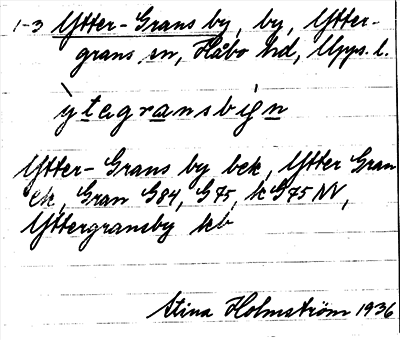 1-3 Ytter-Grans by, by, Ytter-
grans sn, Håbo hd, Upps. l.
ỳtegransbíg̲n̲
Ytter-Grans by bek, Ytter Gran
ek, Gran G84, G75, k G75 NV,
Yttergransby kb
Stina Holmström 1936